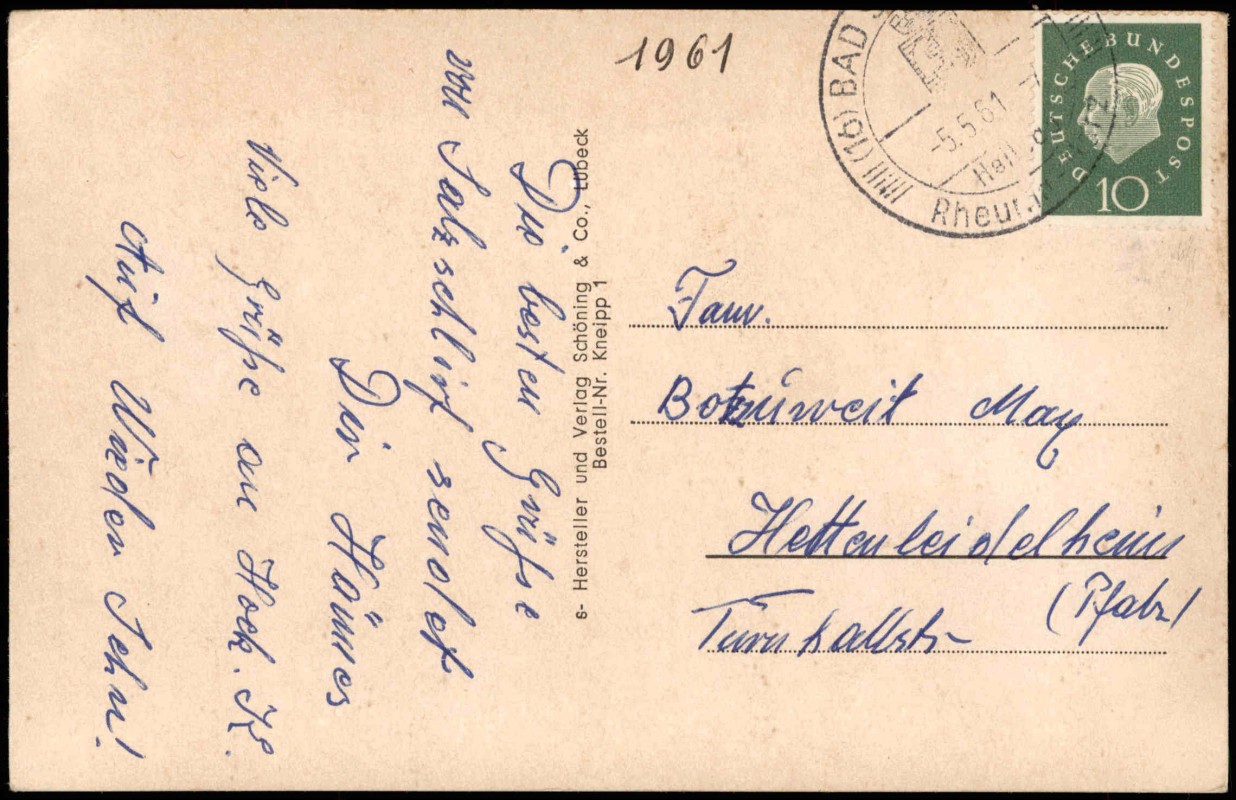 1961
(16) BAD
-5.5.61
DEUTSCHE BUNDESPOST
10
Die besten Grüße
von Salzschlirf sendet
Dir Hannes
Viele Grüße an Hock. K.
Auf Wieder Sehn!
s- Hersteller und Verlag Schöning & Co., Lübeck
Bestell-Nr. Kneipp 1
Fam.
May
Hettenleidelheim
(Pfalz)
Turnhallstr